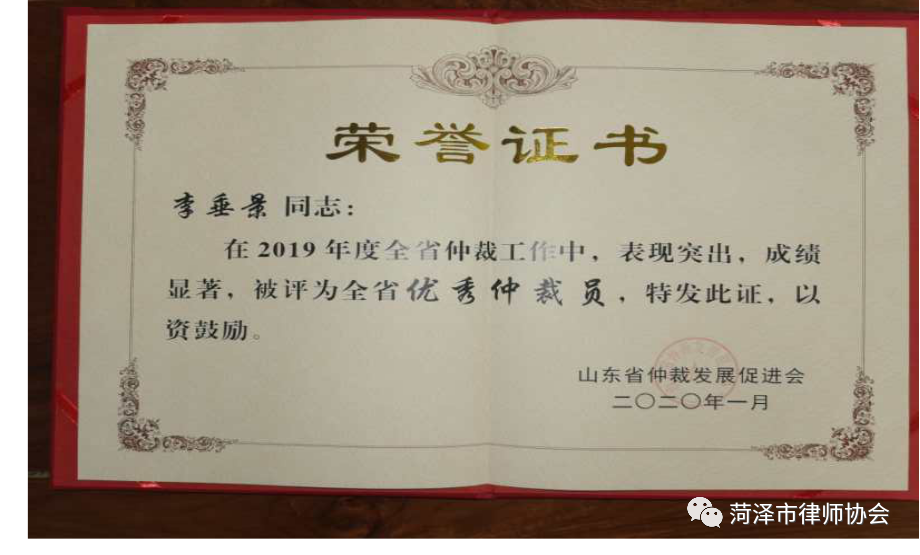 荣誉证书
李垂景 同志：
在 2019 年度全省仲裁工作中，表现突出，成绩
显著，被评为全省优秀仲裁员，特发此证，以
资鼓励。
山东省仲裁发展促进会
二〇二〇年一月
菏泽市律师协会